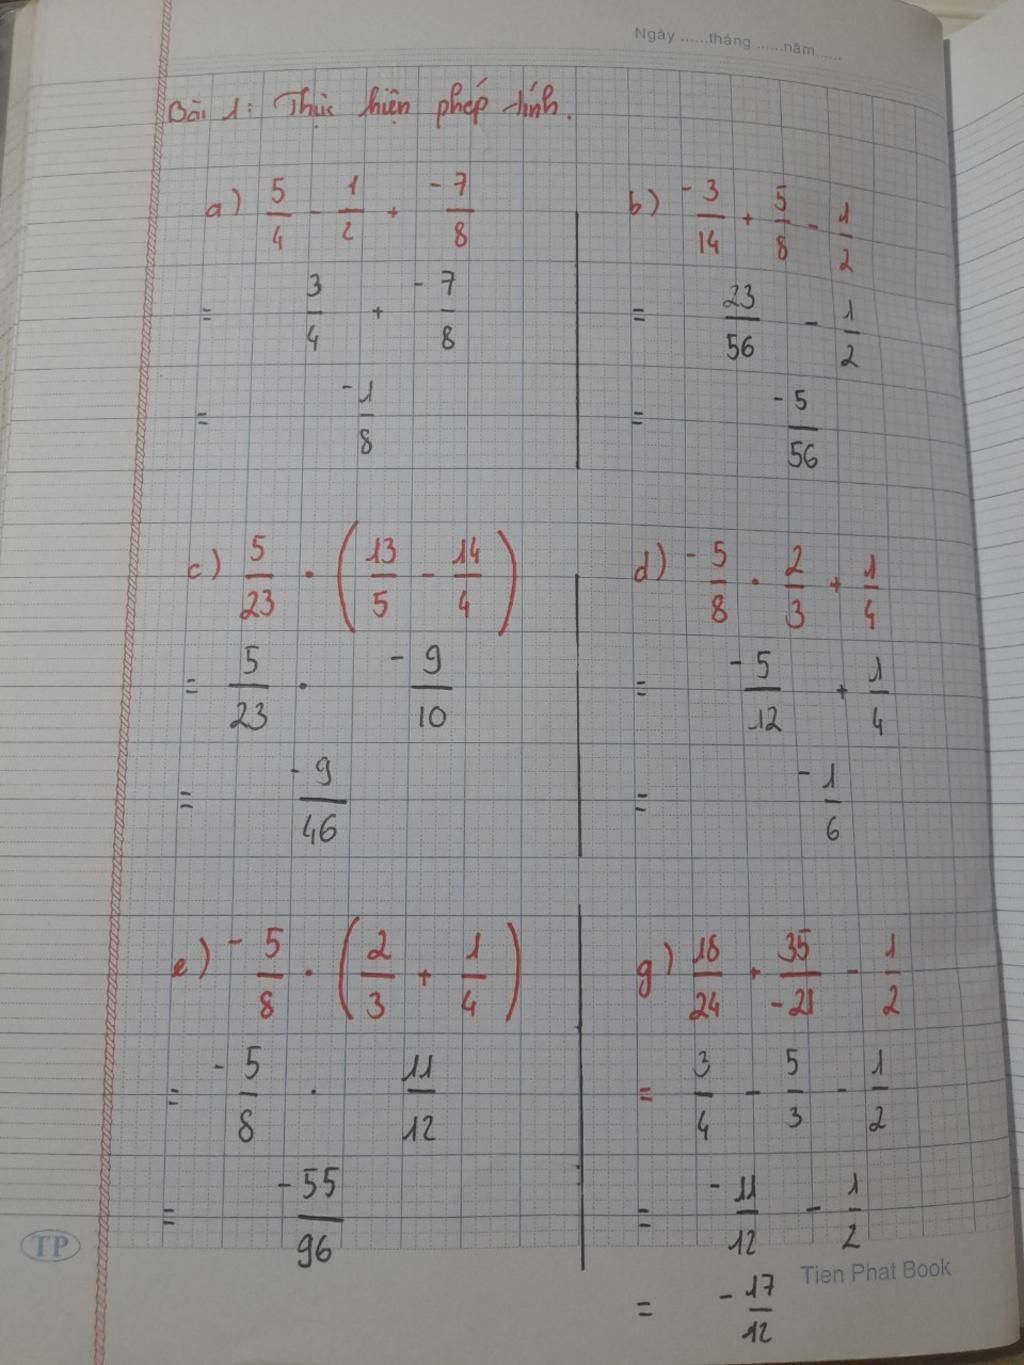 Ngày ......tháng ......năm......
Bài 1: Thực hiện phép tính.
a) 5/4 - 1/2 + -7/8
= 3/4 + -7/8
= -1/8
b) -3/14 + 5/8 - 1/2
= 23/56 - 1/2
= -5/56
c) 5/23 . (13/5 - 14/4)
= 5/23 . -9/10
= -9/46
d) -5/8 . 2/3 + 1/4
= -5/12 + 1/4
= -1/6
e) -5/8 . (2/3 + 1/4)
= -5/8 . 11/12
= -55/96
g) 18/24 + 35/-21 - 1/2
= 3/4 - 5/3 - 1/2
= -11/12 - 1/2
= -17/12
TP
Tien Phat Book